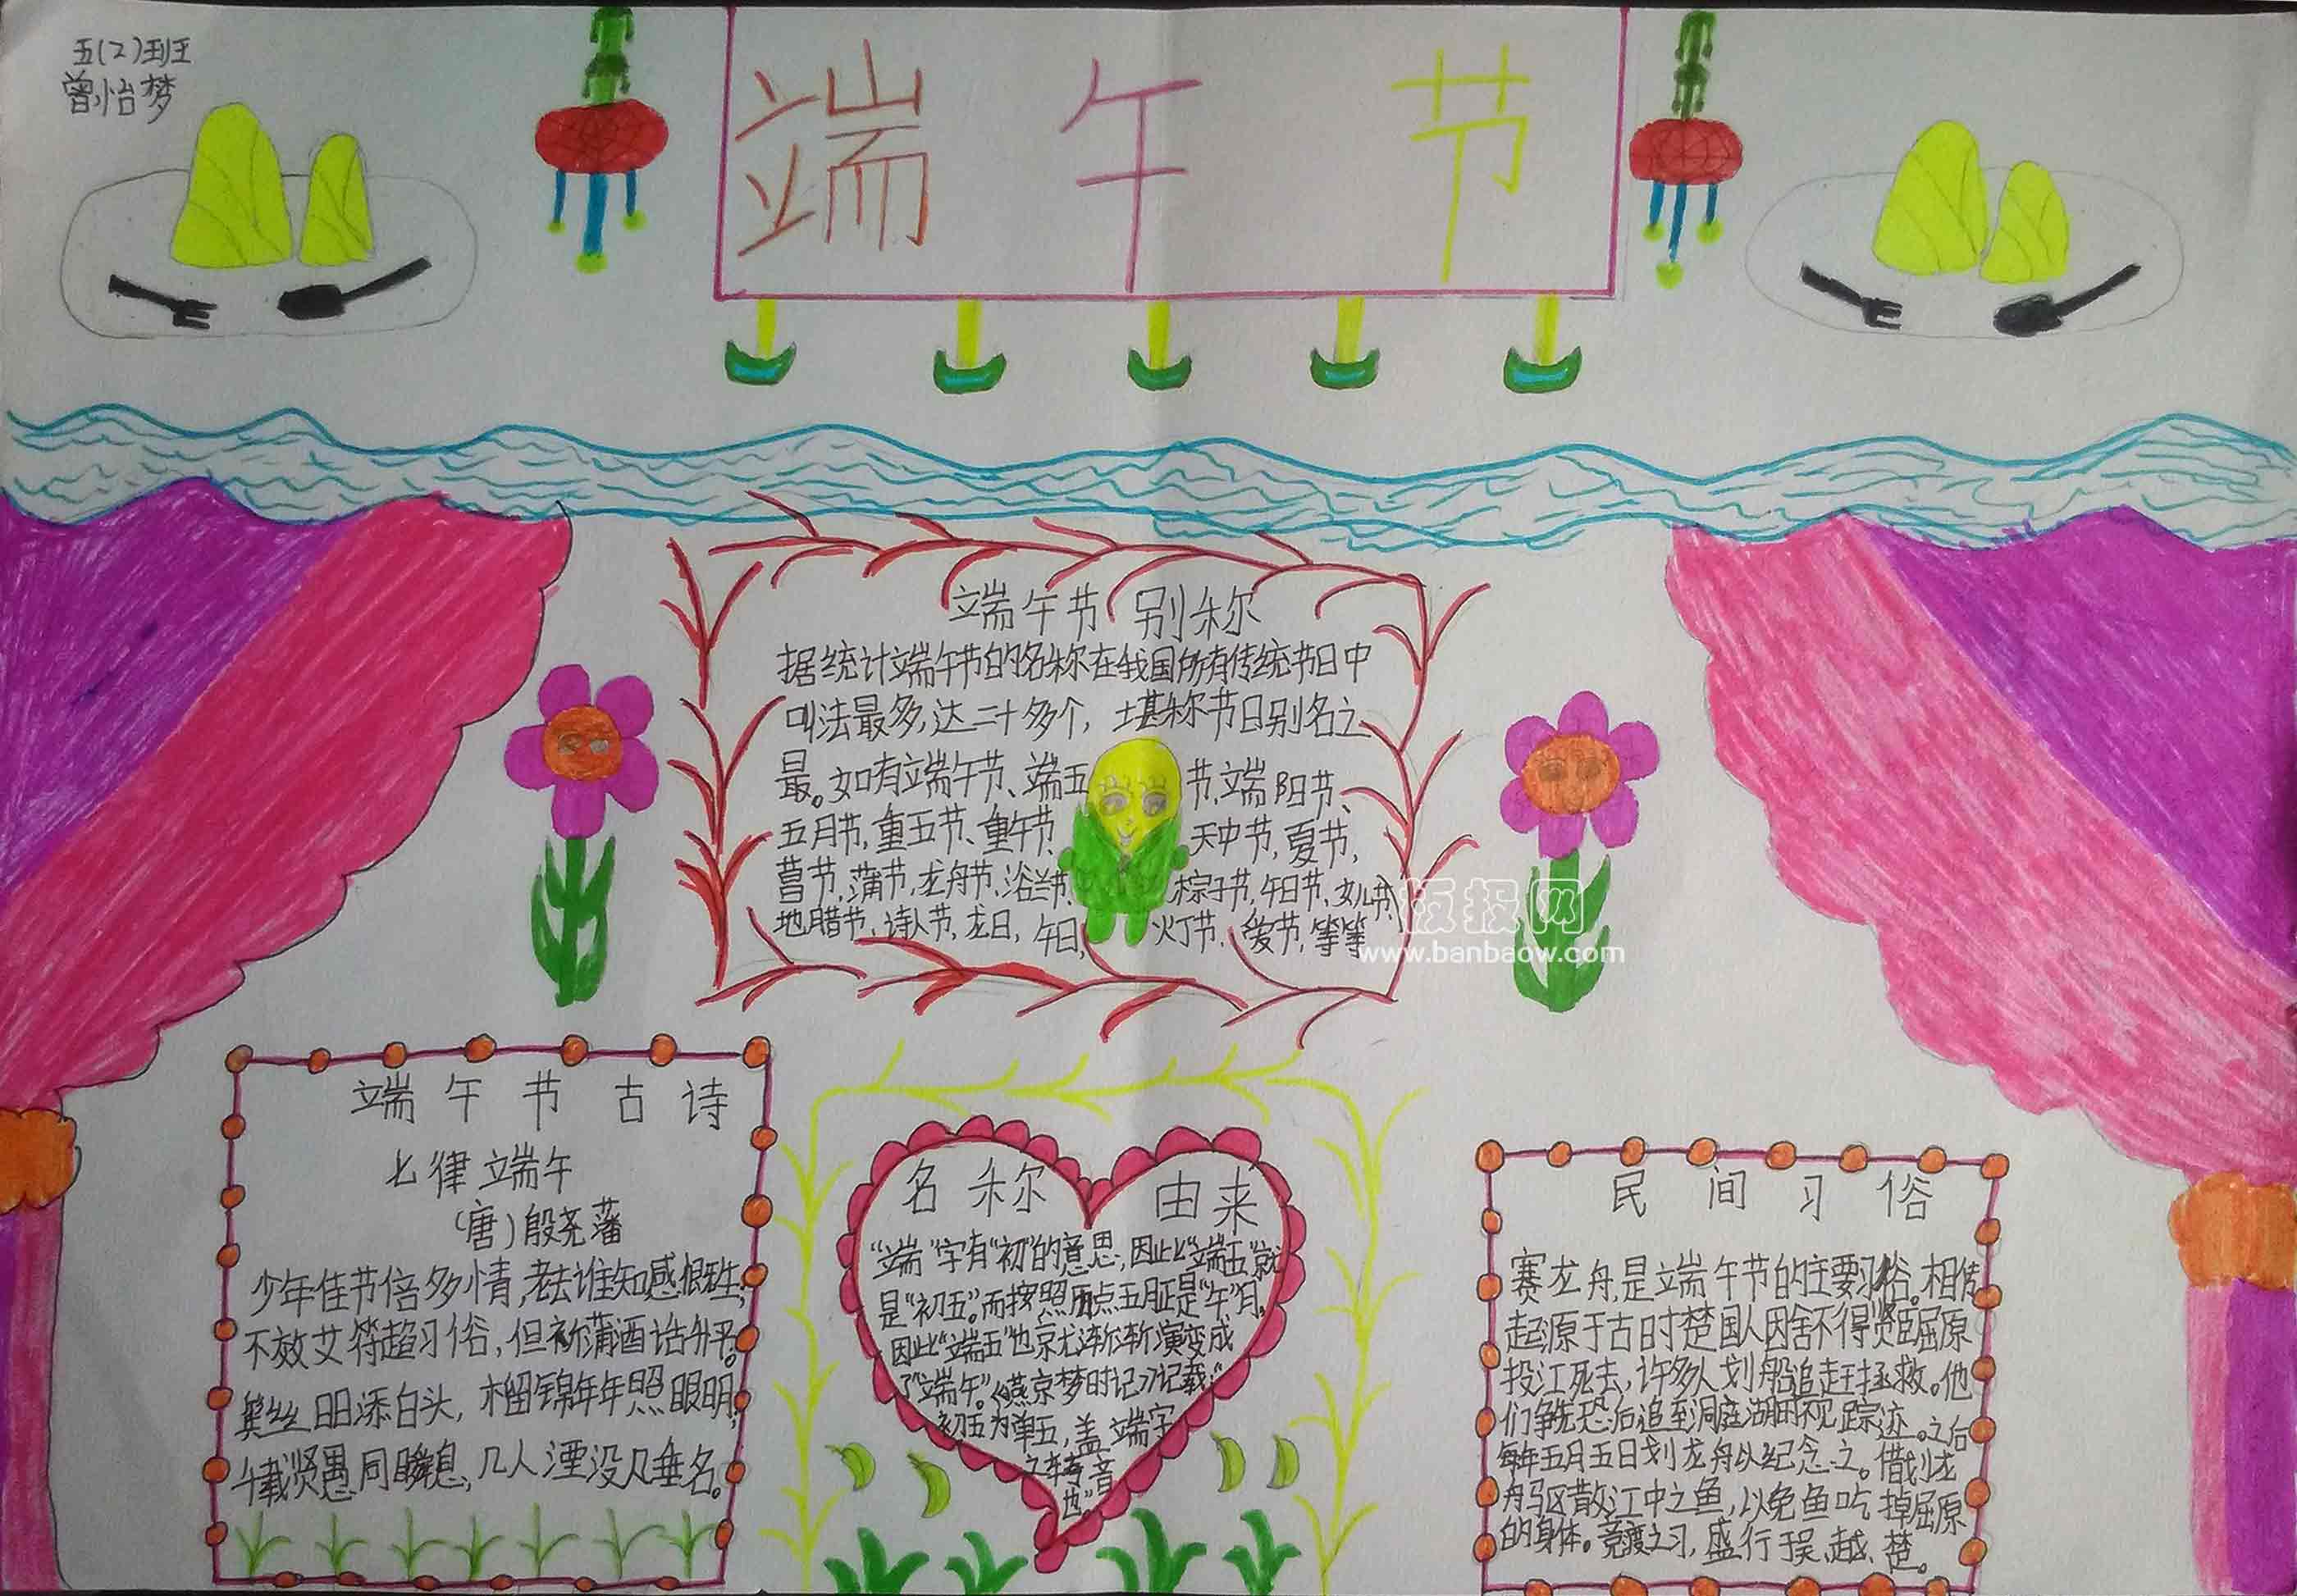 五(2)班
曾怡梦
端午节
端午节 别称
据统计端午节的名称在我国所有传统节日中
叫法最多,达二十多个,堪称节日别名之
最。如有端午节、端五节,端阳节、
五月节,重五节、重午节、天中节,夏节,
菖节,蒲节,龙舟节,浴兰节,棕子节,午日节,女儿节,
地腊节,诗人节,龙日,午日,灯节、等等
版报网
www.banbaow.com
端午节古诗
七律 端午
(唐)殷尧藩
少年佳节倍多情,老去谁知感慨生;
不效艾符趋习俗,但祈蒲酒话升平。
鬓丝日日添白头,榴锦年年照眼明;
千载贤愚同瞬息,几人湮没几垂名。
名称 由来
“端”字有“初”的意思,因此“端五”就
是“初五”。而按照历点五月正是“午”月,
因此“端五”也就渐渐演变成
了“端午”。《燕京梦时记》记载:“
初五为单五,盖端字
之转音
也”
民间习俗
赛龙舟,是端午节的主要习俗。相传
起源于古时楚国人因舍不得贤臣屈原
投江死去,许多人划船追赶拯救。他
们争先恐后追至洞庭湖时不见踪迹。之后
每年五月五日划龙舟以纪念之。借划龙
舟驱散江中之鱼,以免鱼吃掉屈原
的身体。竞渡之习,盛行于吴、越、楚。